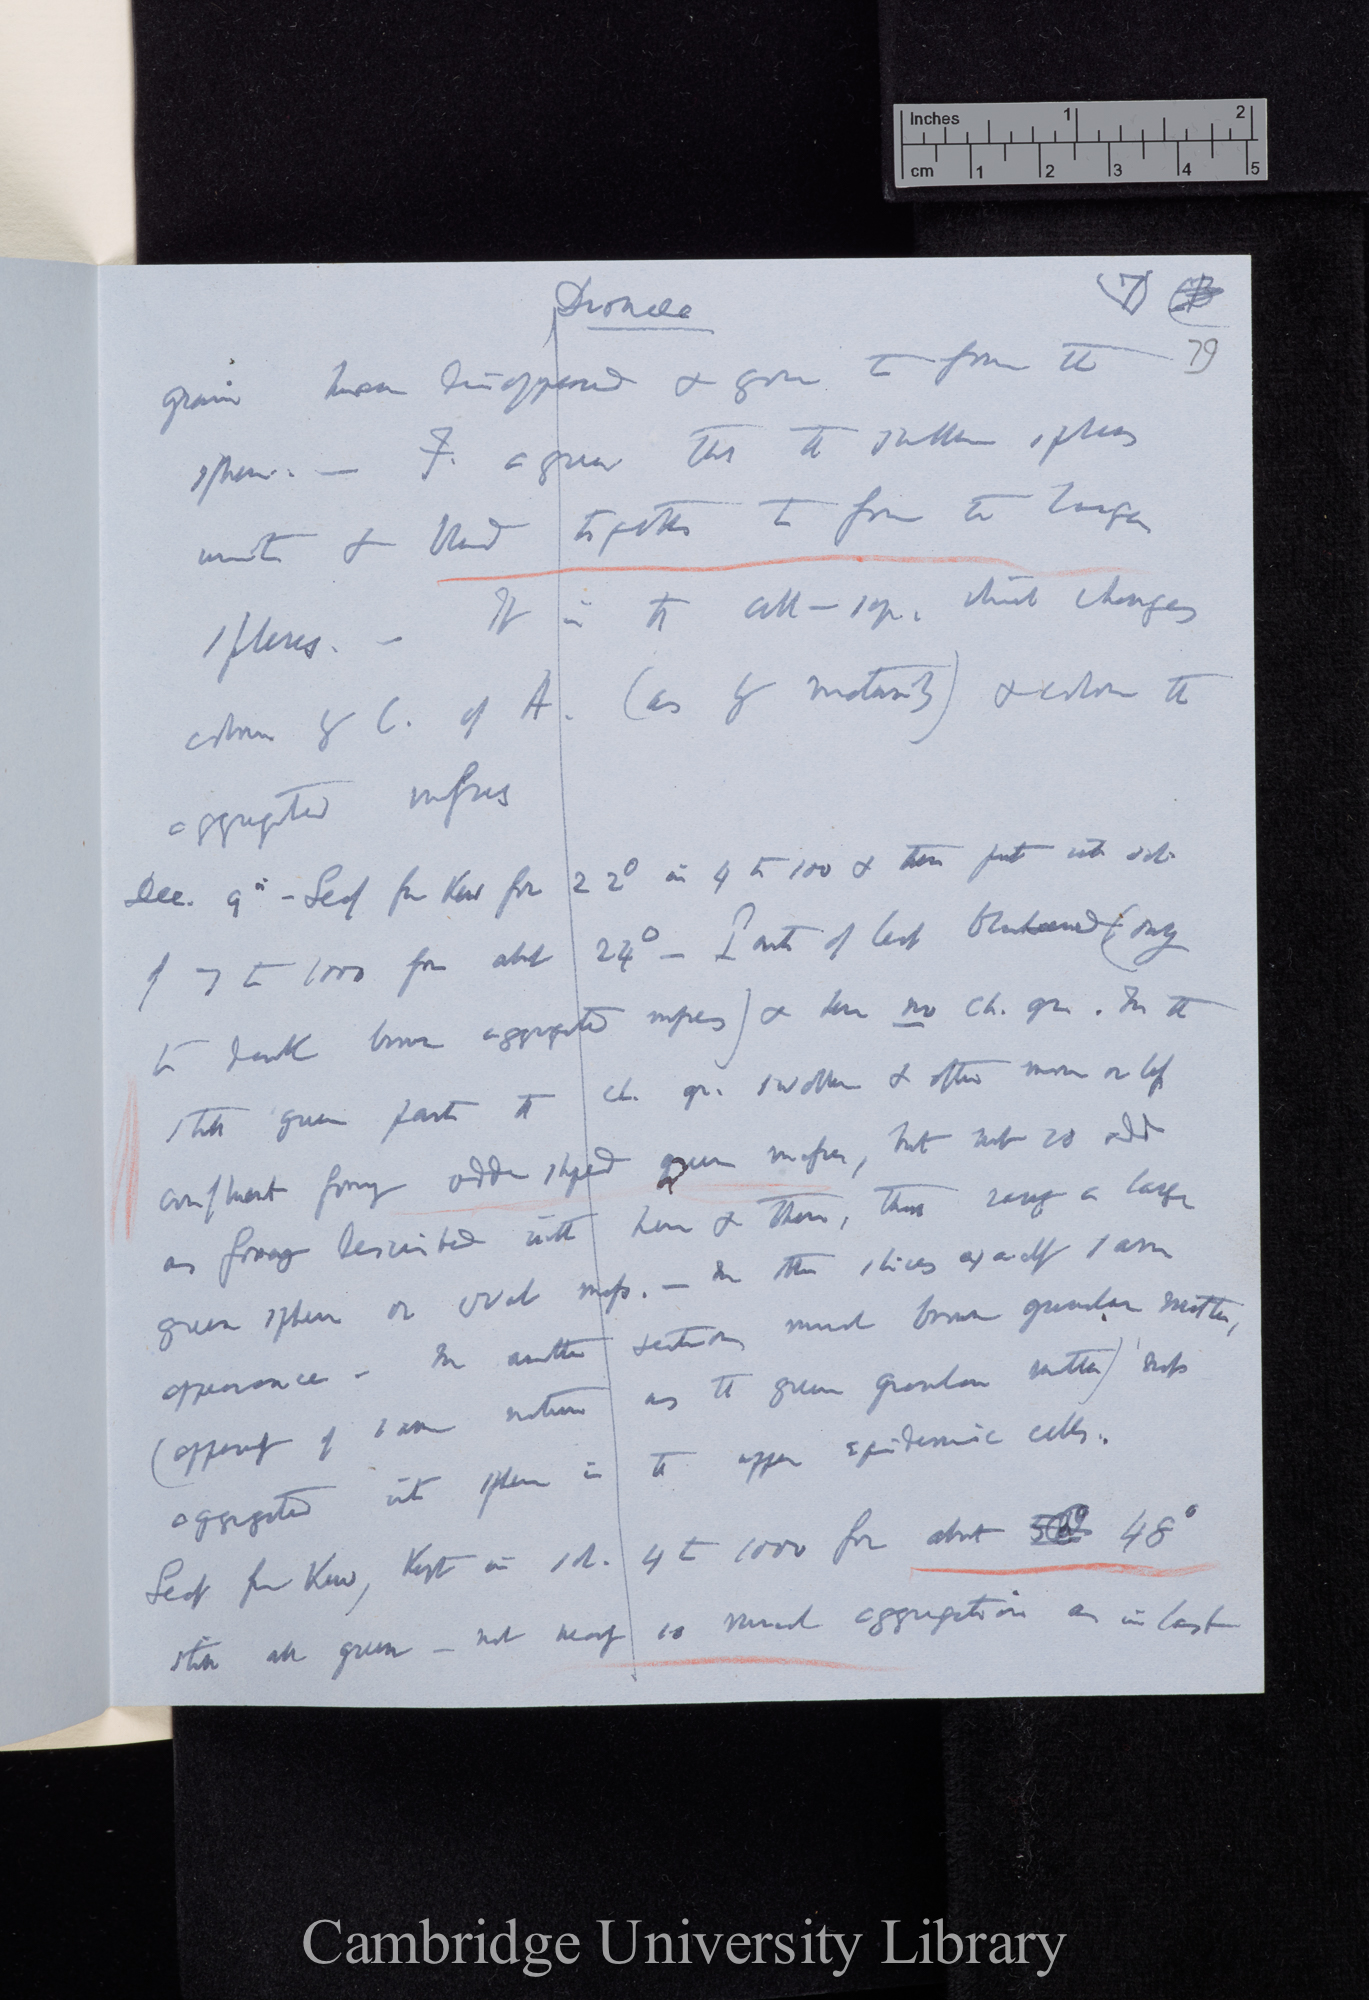 Inches 1 2
cm 1 2 3 4 5
Dionaea
(7)
79
grains have disappeared & gone to form the
spheres. — F. agrees that the smaller spheres
unite & blend together to form the larger
spheres. — It is the cell-sap. which changes
colour by C. of A. (as by maturity) & colours the
aggregated masses
Dec. 9th - Leaf from Kew for 22° in 4 to 1000 & then put into sol.
of 7 to 1000 for about 24° — Parts of leaf blackened (only
to dark brown aggregated masses) & here no ch. gr. In the
still green parts the ch. gr. swollen & often more or less
confluent forming oddly shaped green masses, but not so odd
as formerly described with here & there, there a large
green sphere or oval mass. — In other slices exactly same
appearance - In another section much brown granular matter,
(apparently of same nature as the green granular matter)
aggregated into spheres in the upper epidermic cells.
Leaf from Kew, kept in sol. 4 to 1000 for about 48°
still all green — not nearly so much aggregation as in last
Cambridge University Library